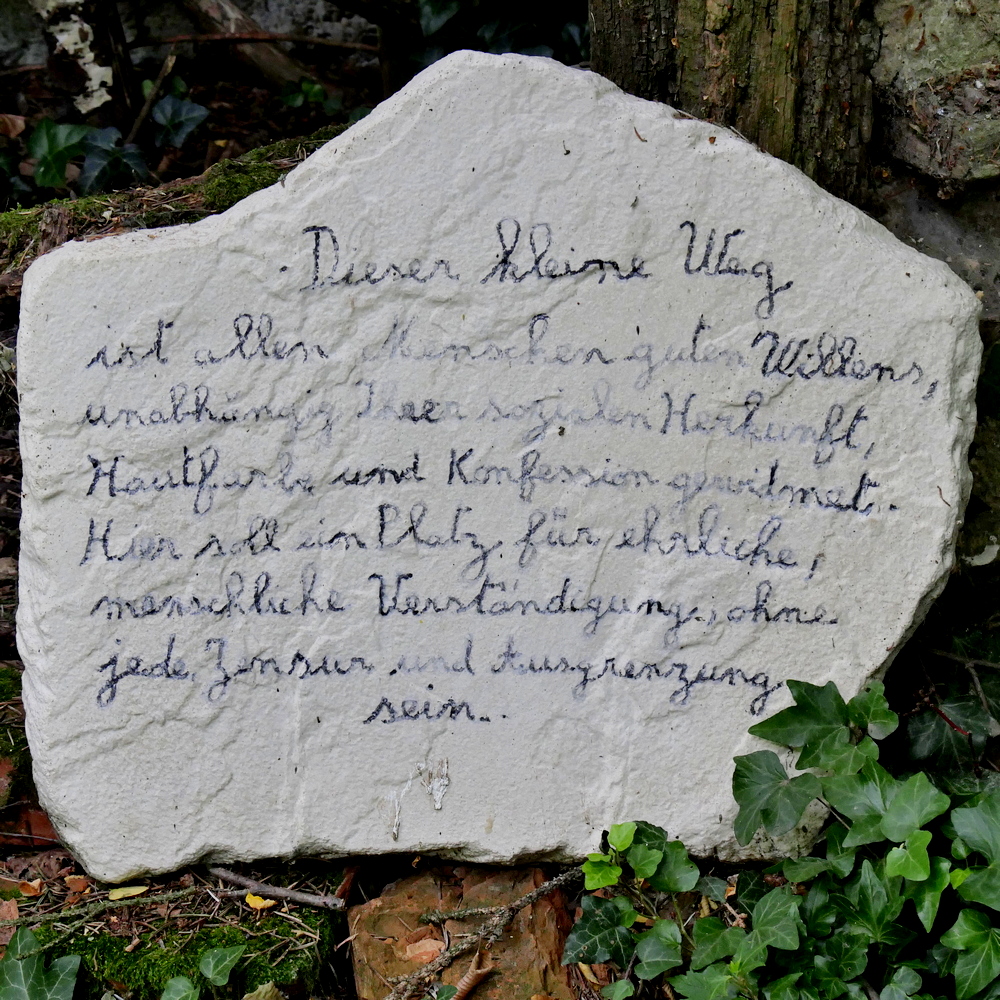 Dieser kleine Weg
ist allen Menschen guten Willens,
unabhängig Iherer sozialen Herkunft,
Hautfarbe und Konfession gewidmet.
Hier soll ein Platz für ehrliche,
menschliche Verständigung, ohne
jede Zensur und Ausgrenzung
sein.